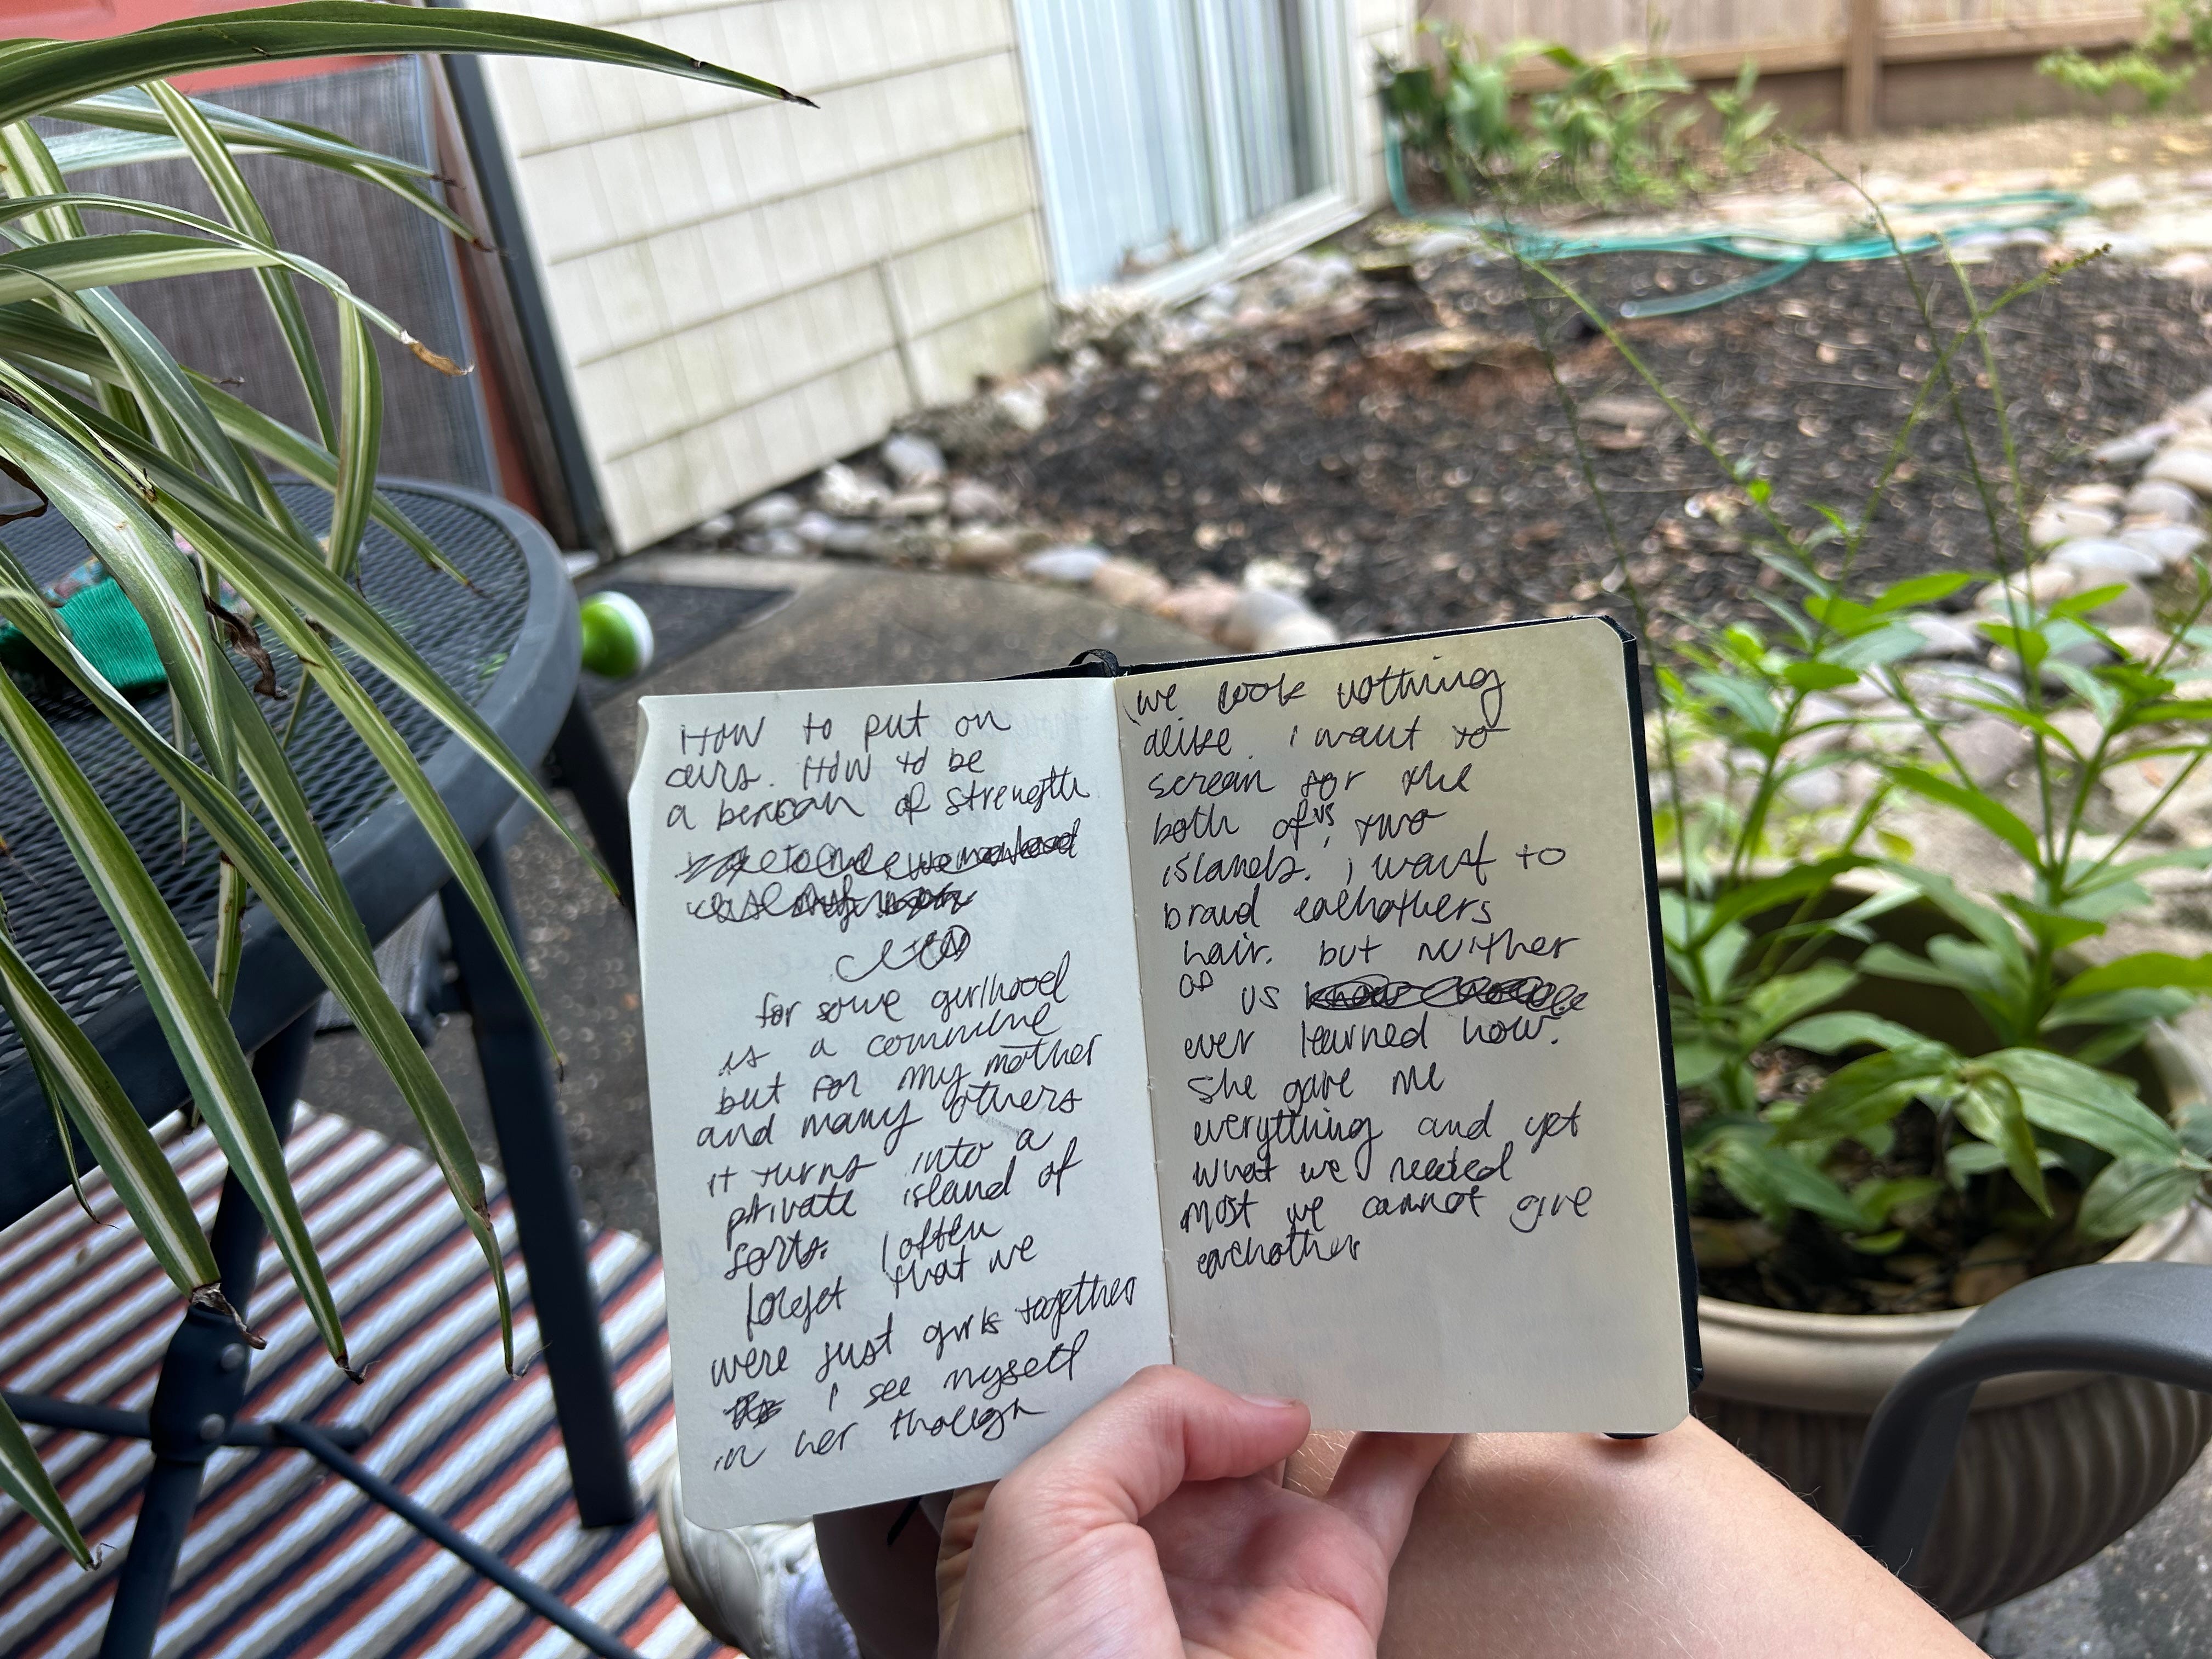 How to put on
airs. How to be
a beacon of strength
for some girlhood
is a commune
but for my mother
and many others
it turns into a
private island of
sorts. I often
forget that we
were just girls together
I see myself
in her though
we look nothing
alike. I want to
scream for the
both of us, two
islands. I want to
braid eachothers
hair. but neither
of us
ever learned how.
She gave me
everything and yet
what we needed
most we cannot give
eachother